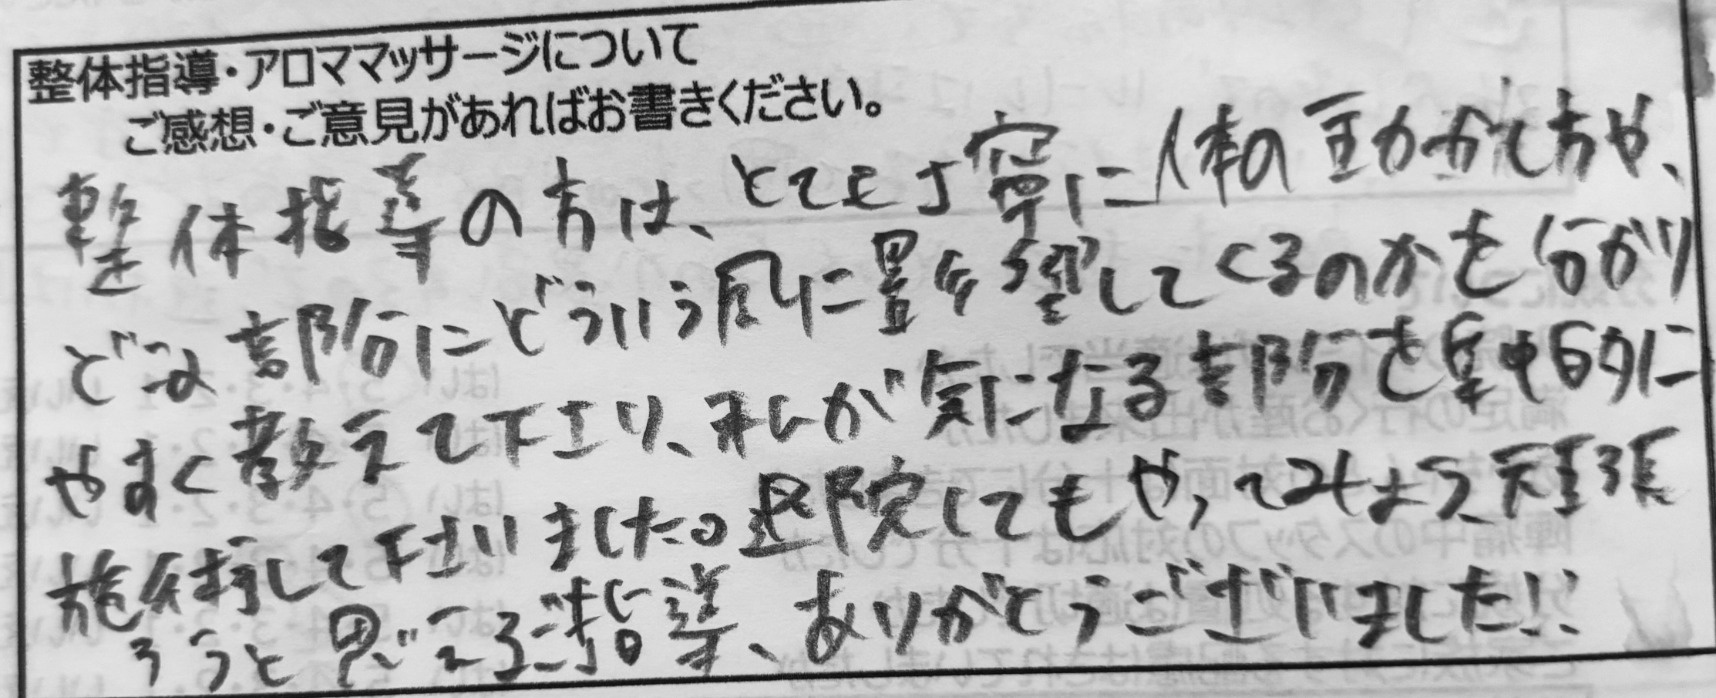 整体指導・アロママッサージについて
ご感想・ご意見があればお書きください。
整体指導の方は、とても丁寧に人体の動かし方や、
どこの部分にどういう風に影響してくるのかを分かり
やすく教えて下さり、私が気になる部分を集中的に
施術して下さいました。退院してもやってみよう、頑張
ろうと思えるご指導、ありがとうございました!!